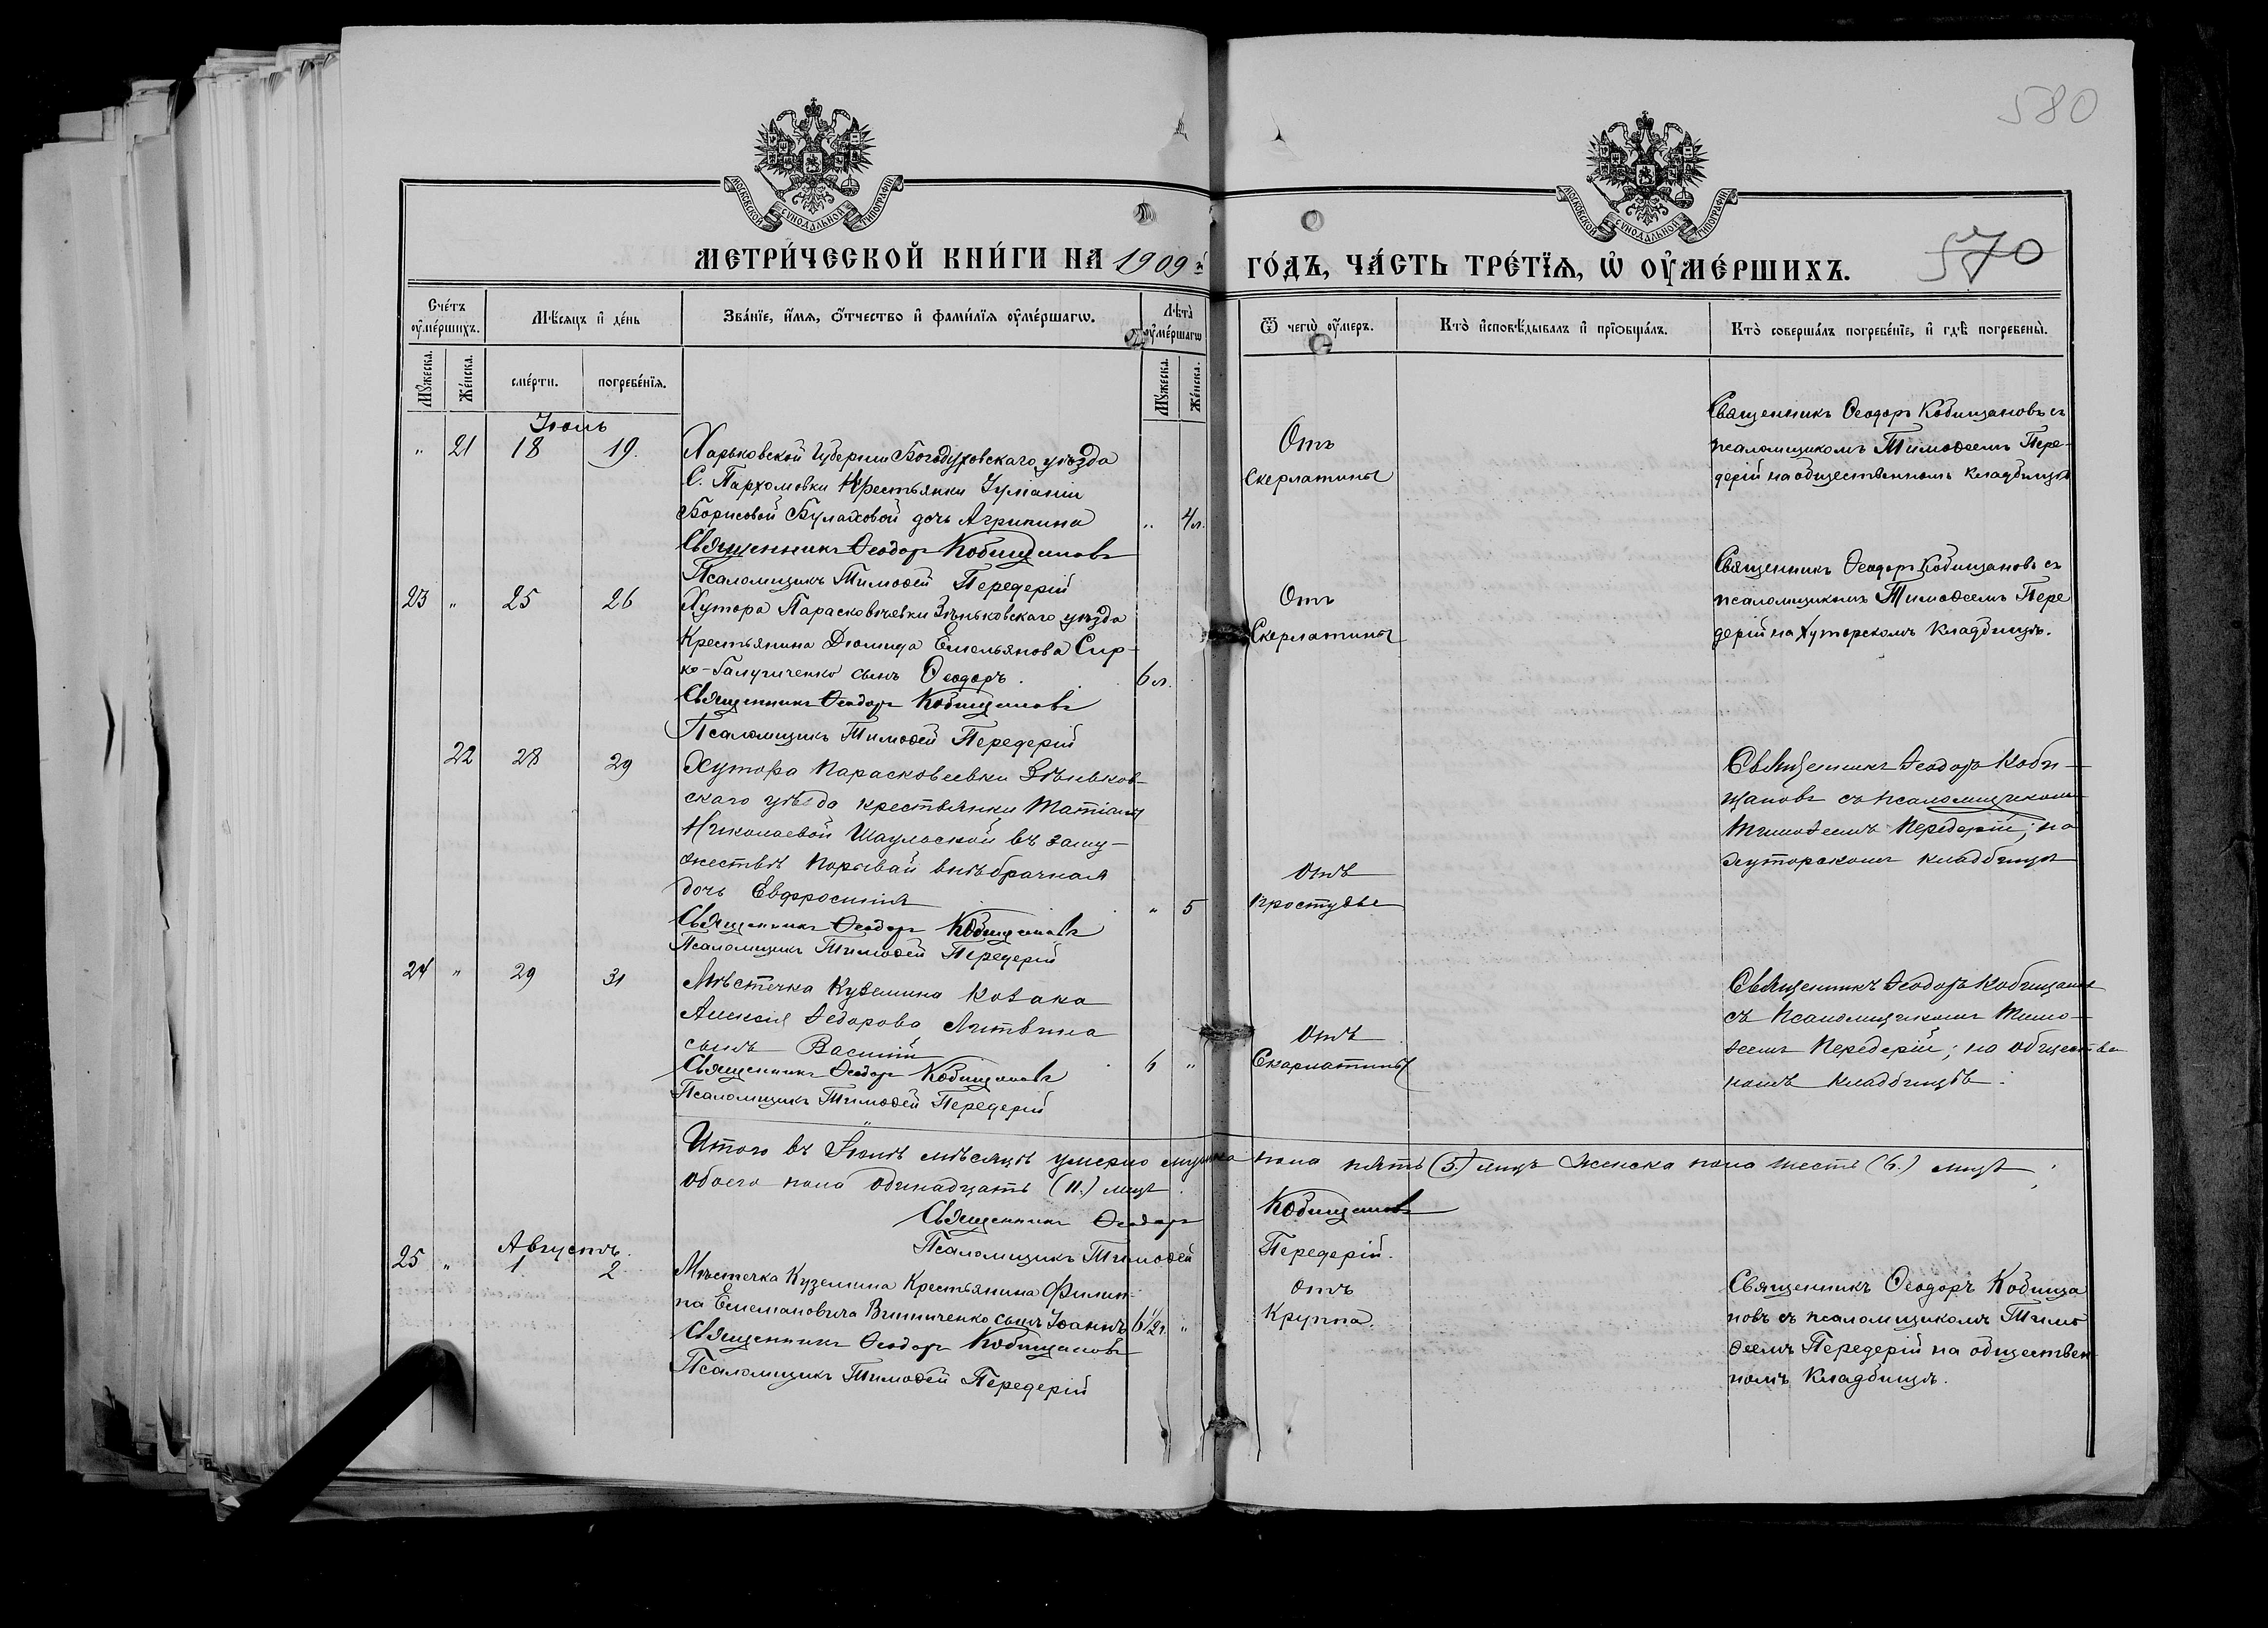 580
570
МОСКОВСКОЙ СУНОДАЛЬНОЙ ТИПОГРАФІИ
МОСКОВСКОЙ СУНОДАЛЬНОЙ ТИПОГРАФІИ
МЕТРИ́ЧЕСКОЙ КНИ́ГИ НА 1909й ГО́ДЪ, ЧА́СТЬ ТРЕ́ТЇѦ, Ѡ҆ ОУ҆МЕ́РШИХЪ.
Сче́тъ оу҆ме́ршихъ.
Мꙋ́жеска.
Же́нска.
Мѣ́сяцъ и҆ де́нь
сме́рти.
погребе́нїя.
Зва́нїе, и҆́мѧ, ѻ҆́тчество и҆ фами́лїѧ оу҆ме́ршагѡ.
Лѣ́та оу҆ме́ршагѡ
Мꙋ́жеска.
Же́нска.
Ѿ чегѡ̀ оу҆́меръ.
Кто̀ и҆сповѣ́дывалъ и҆ прїѡбща́лъ.
Кто̀ соверша́лъ погребе́нїе, и҆ гдѣ̀ погребены̀.
Іюль
" 21 18 19.
Харьковской Губерніи Богодуховскаго уѣзда
С. Пархомовки Крестьянки Іуліаніи
Борисовой Булаховой дочь Агрипина
" 4 л.
Священникъ Ѳеодоръ Кобищановъ
Псаломщикъ Тимоѳей Передерій
Отъ
Скерлатины
Священникъ Ѳеодоръ Кобищановъ съ
псаломщикомъ Тимоѳеемъ Пере-
дерій на общественномъ кладбищѣ
23 " 25 26
Хутора Парасковѣевки Зѣньковскаго уѣзда
Крестьянина Діомида Емельянова Сир-
ко-Галушченко сынъ Ѳеодоръ.
6 л.
Священникъ Ѳеодоръ Кобищановъ
Псаломщикъ Тимоѳей Передерій
Отъ
Скерлатины
Священникъ Ѳеодоръ Кобищановъ съ
псаломщикомъ Тимоѳеемъ Пере
дерій на Хуторскомъ Кладбищѣ.
22 28 29
Хутора Парасковеевки Зѣньков-
скаго уѣзда крестьянки Татіаны
Николаевой Шаульской въ заму-
жествѣ Порывай внѣбрачная
дочь Евфросинія
" 5
Священникъ Ѳеодоръ Кобищановъ
Псаломщикъ Тимоѳей Передерій
отъ
простуды
Священникъ Ѳеодоръ Коби-
щановъ съ псаломщикомъ
Тимоѳеемъ Передерій; на
хуторскомъ кладбищѣ
24 " 29 31
Мѣстечка Куземина Козака
Алексія Ѳедорова Литвина
сынъ Василій
6 "
Священникъ Ѳеодоръ Кобищановъ
Псаломщикъ Тимоѳей Передерій
отъ
Скарлатины
Священникъ Ѳеодоръ Кобищановъ
съ Псаломщикомъ Тимо-
ѳеемъ Передерій; на обществен
номъ кладбищѣ.
Итого въ Іюлѣ мѣсяцѣ умерло мужска пола пять (5.) лицъ женска пола шесть (6.) лицъ;
обоего пола одинадцать (11.) лицъ.
Священникъ Ѳеодоръ Кобищановъ
Псаломщикъ Тимоѳей Передерій.
Августъ.
25 " 1 2
Мѣстечка Куземина Крестьянина Филип-
па Емельяновича Винниченко сынъ Іоаннъ
6 1/2 г. "
Священникъ Ѳеодоръ Кобищановъ
Псаломщикъ Тимоѳей Передерій
отъ
Круппа.
Священникъ Ѳеодоръ Кобища
новъ съ псаломщикомъ Тимо
ѳеемъ Передерій на обществен-
номъ Кладбищѣ.